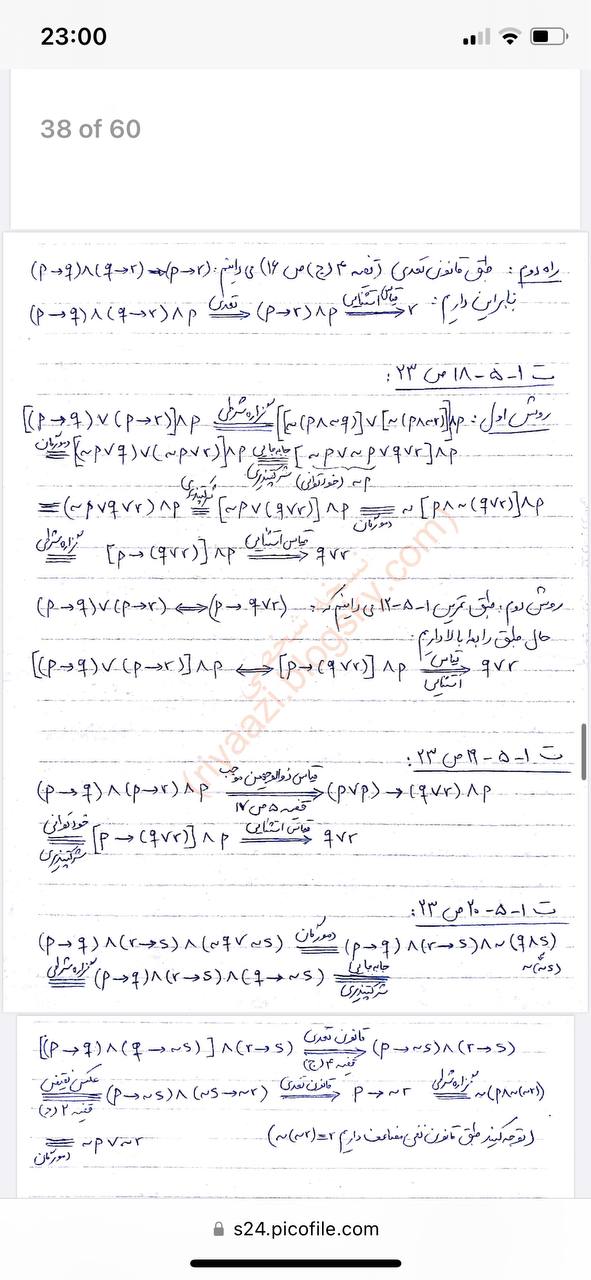 23:00
38 of 60
راه دوم: طبق قانون تعدی (قضیه ۴ (ج) ص ۱۶) می دانیم: (p→q)∧(q→r)⇒(p→r)
بنابراین داریم: (p→q)∧(q→r)∧p تعدی⟹ (p→r)∧p قیاس استثنایی⟹ r
ت ۱-۵-۱۸ ص ۲۳:
روش اول: [(p→q)∨(p→r)]∧p گزاره شرطی≡ [[~(p∧~q)]∨[~(p∧~r)]]∧p
دمورگان≡ [~p∨q)∨(~p∨r)]∧p جابه جایی≡شرکتپذیری [~p∨~p∨q∨r]∧p
~p (خودتوانی)
≡(~p∨q∨r)∧p شرکتپذیری≡ [~p∨(q∨r)]∧p ≡دمورگان ~[p∧~(q∨r)]∧p
گزاره شرطی≡ [p→(q∨r)]∧p قیاس استثنایی⟹ q∨r
روش دوم: طبق تمرین ۱-۵-۱۲ می دانیم که: (p→q)∨(p→r)⟺(p→q∨r)
حال طبق رابطه بالا داریم:
[(p→q)∨(p→r)]∧p ⟺ [p→(q∨r)]∧p قیاس⟹استثنایی q∨r
ت ۱-۵-۱۹ ص ۲۳:
(p→q)∧(p→r)∧p قیاس ذوالوجهین موجب⟹قضیه ۵ ص ۱۷ (p∨p)→(q∨r)∧p
خودتوانی≡شرکتپذیری [p→(q∨r)]∧p قیاس استثنایی⟹ q∨r
ت ۱-۵-۲۰ ص ۲۳:
(p→q)∧(r→s)∧(~q∨~s) دمورگان≡ (p→q)∧(r→s)∧~(q∧s)
~(~s)
گزاره شرطی≡ (p→q)∧(r→s)∧(q→~s) جابه جایی≡شرکتپذیری
[(p→q)∧(q→~s)]∧(r→s) قانون تعدی⟹قضیه ۴ (ج) (p→~s)∧(r→s)
عکس نقیض≡قضیه ۲ (د) (p→~s)∧(~s→~r) قانون تعدی⟹ p→~r گزاره شرطی≡ ~(p∧~(~r))
≡دمورگان ~p∨~r (توجه کنید طبق قانون نفی مضاعف داریم ~(~r)=r)
نسخه
(riyaazi.blogsky.com)
s24.picofile.com